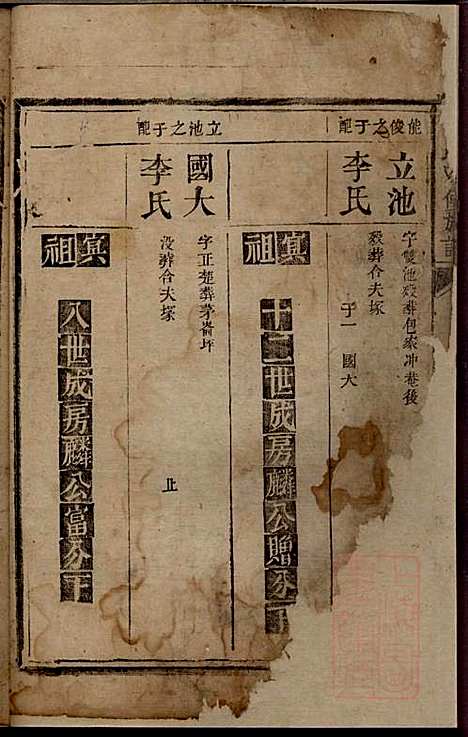 能俊之子配
立池
字雙池殁葬包家冲巷後
李氏
殁葬合夫塚
子一 國大
祖寘
十二世成房麟公贈分下
立池之子配
國大
字正楚葬茅畬坪
李氏
没葬合夫塚
止
祖寘
八世成房麟公富分下